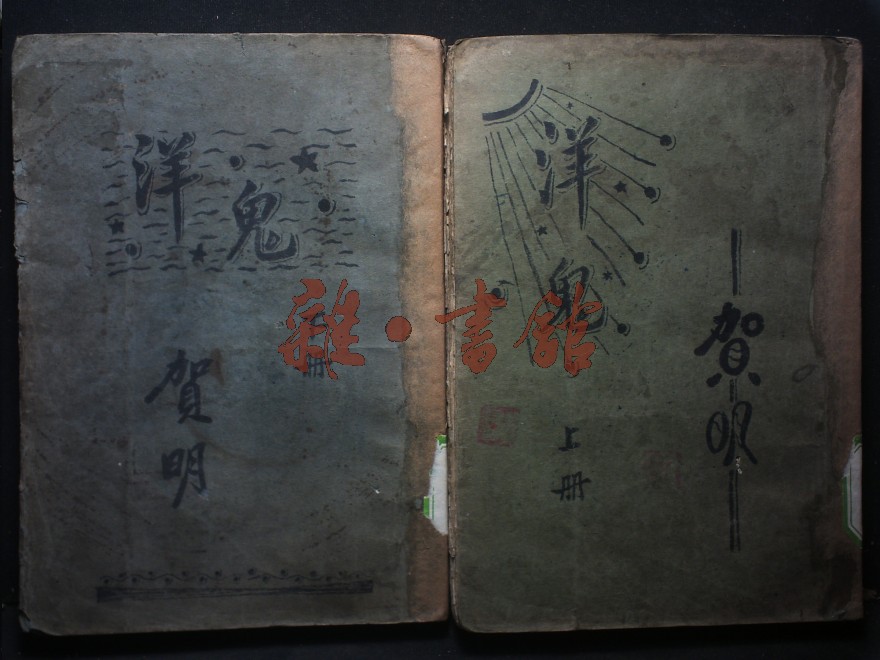 洋鬼
册
賀明
洋鬼
上册
賀明
雜·書館